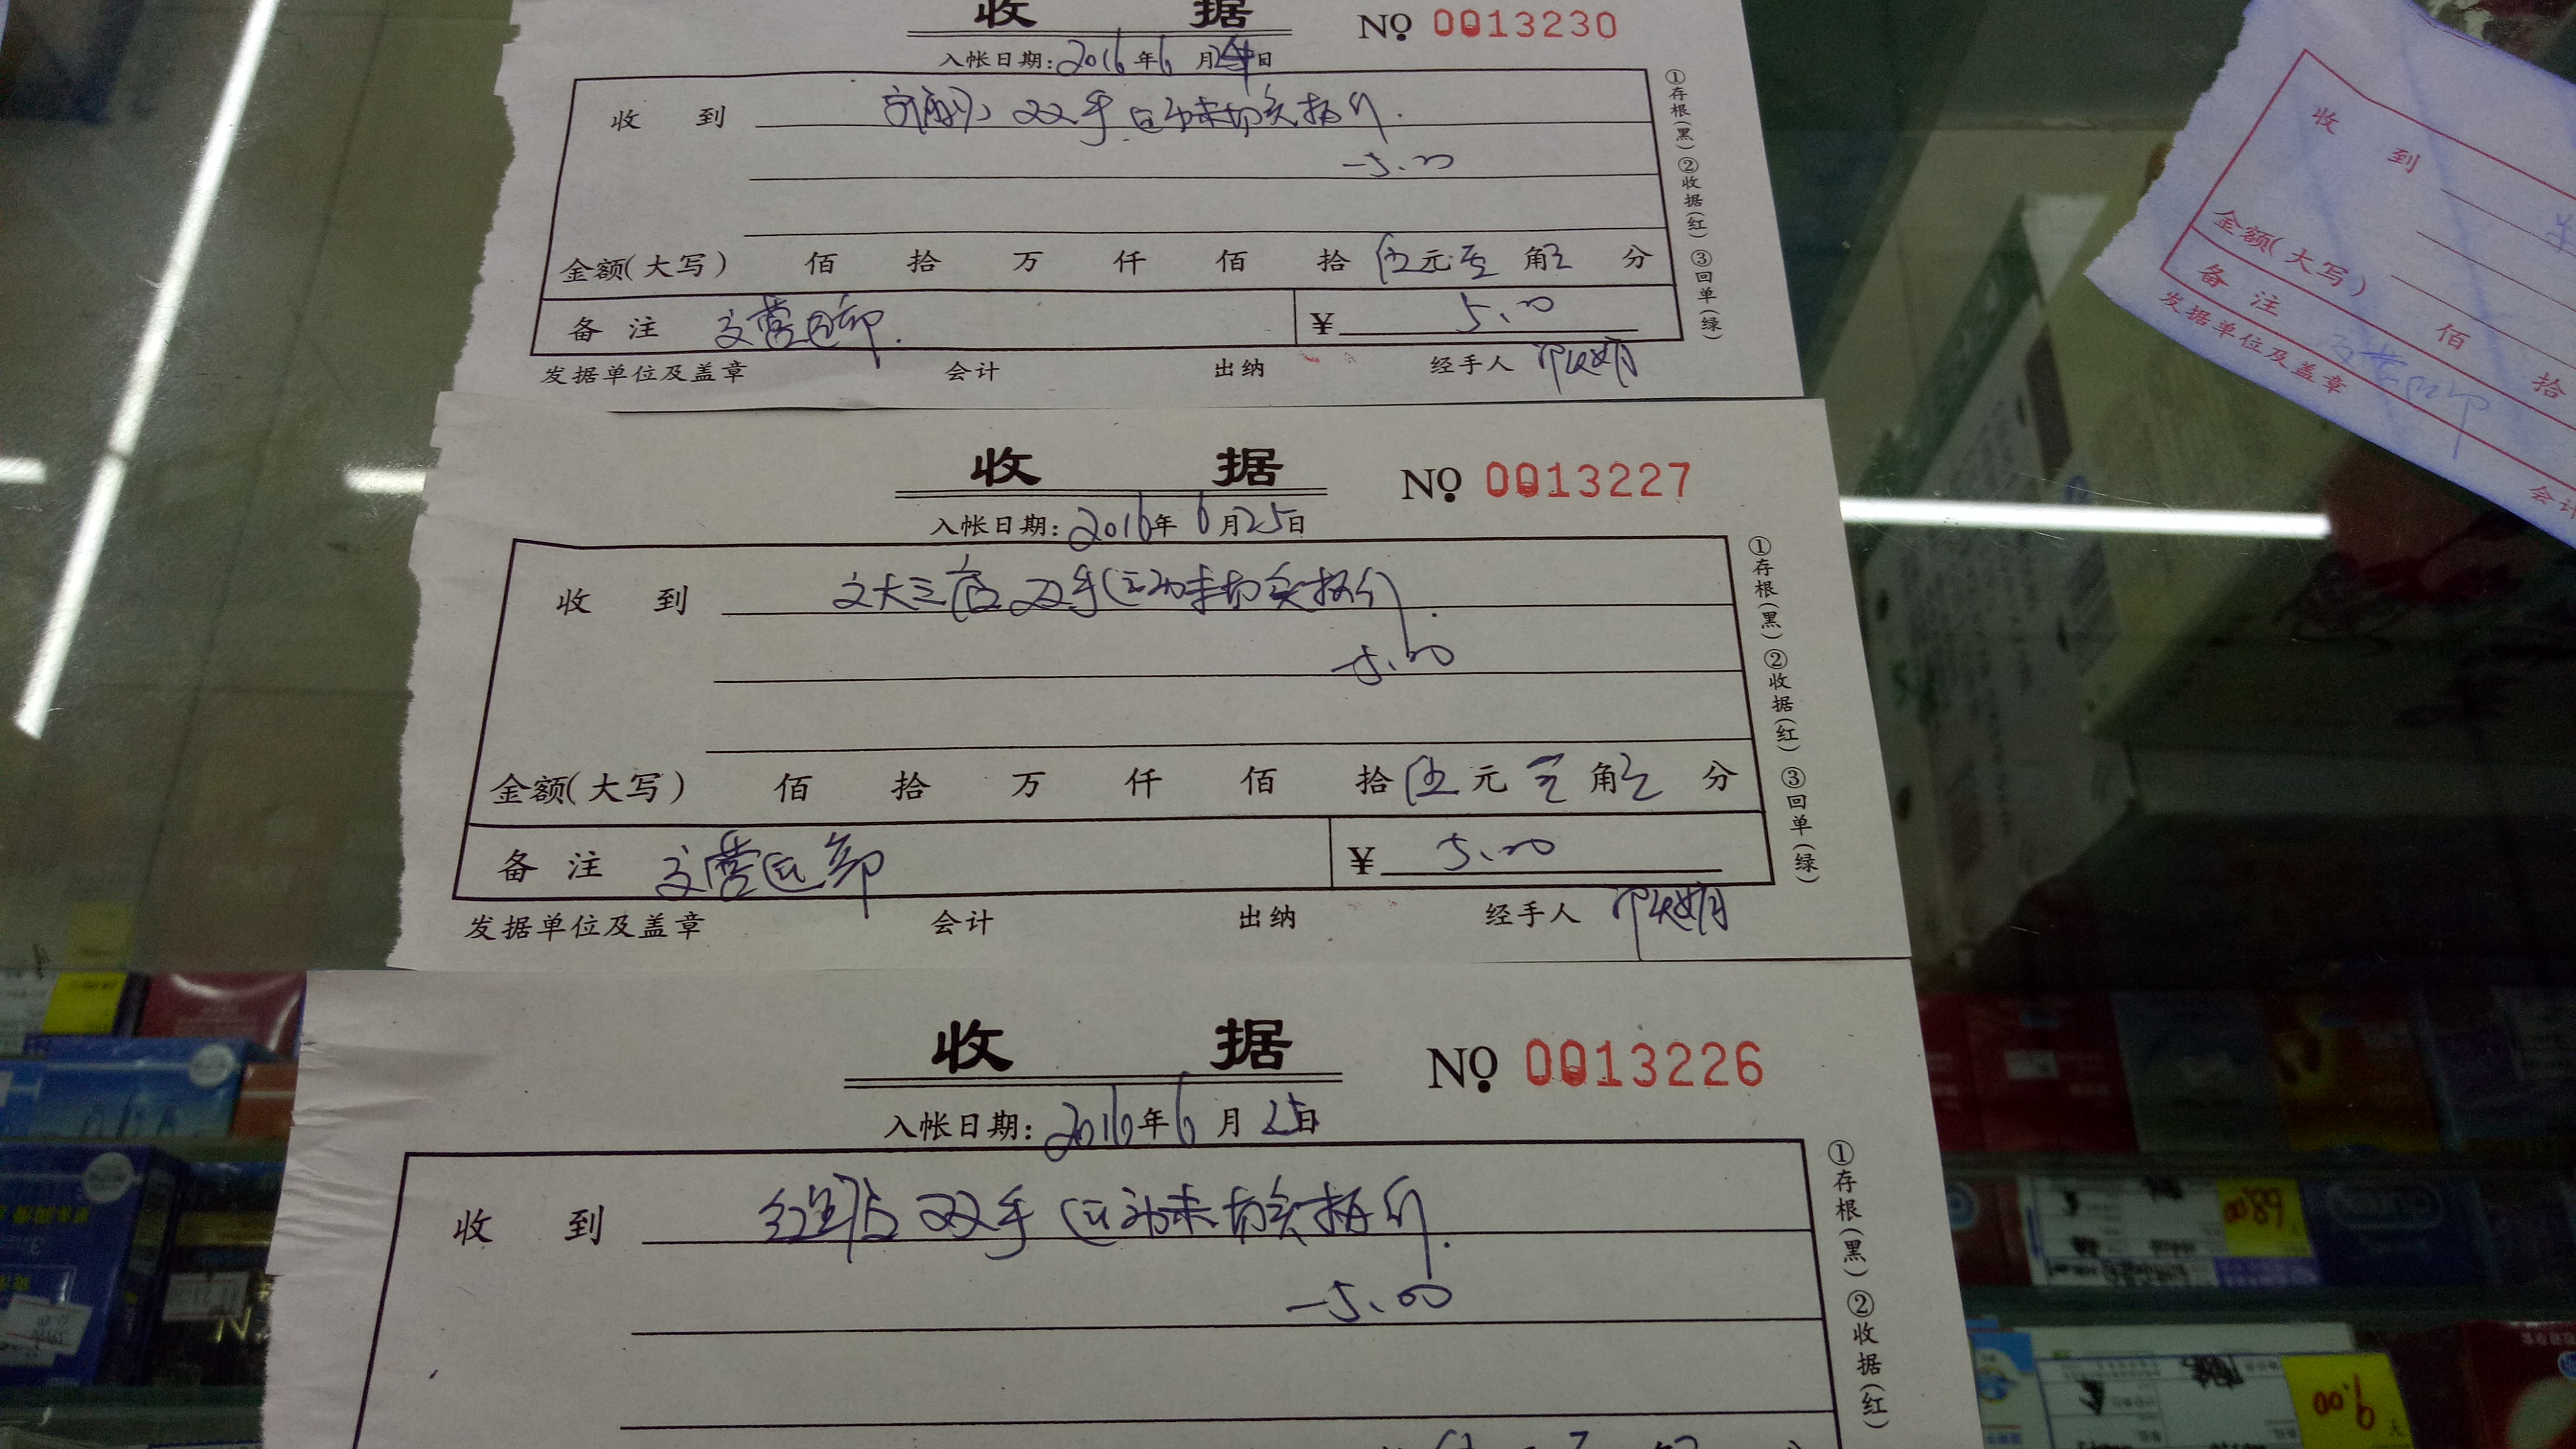 收 据 No 0013230
入帐日期:2016年6月日
收 到 双手运动未切实执行.
-5.00
金额(大写) 佰 拾 万 仟 佰 拾 伍元零角零分
备注 文营运部. ¥ 5.00
发据单位及盖章 会计 出纳 经手人
①存根(黑)②收据(红)③回单(绿)
收 据 No 0013227
入帐日期:2016年6月25日
收 到 文大三店双手运动未切实执行.
-5.00
金额(大写) 佰 拾 万 仟 佰 拾 伍元零角零分
备注 文营运部 ¥ 5.00
发据单位及盖章 会计 出纳 经手人
①存根(黑)②收据(红)③回单(绿)
收 据 No 0013226
入帐日期:2016年6月25日
收 到 双手运动未切实执行.
-5.00
①存根(黑)②收据(红)
收 到
金额(大写) 佰 拾
备注
发据单位及盖章 会计
9.00